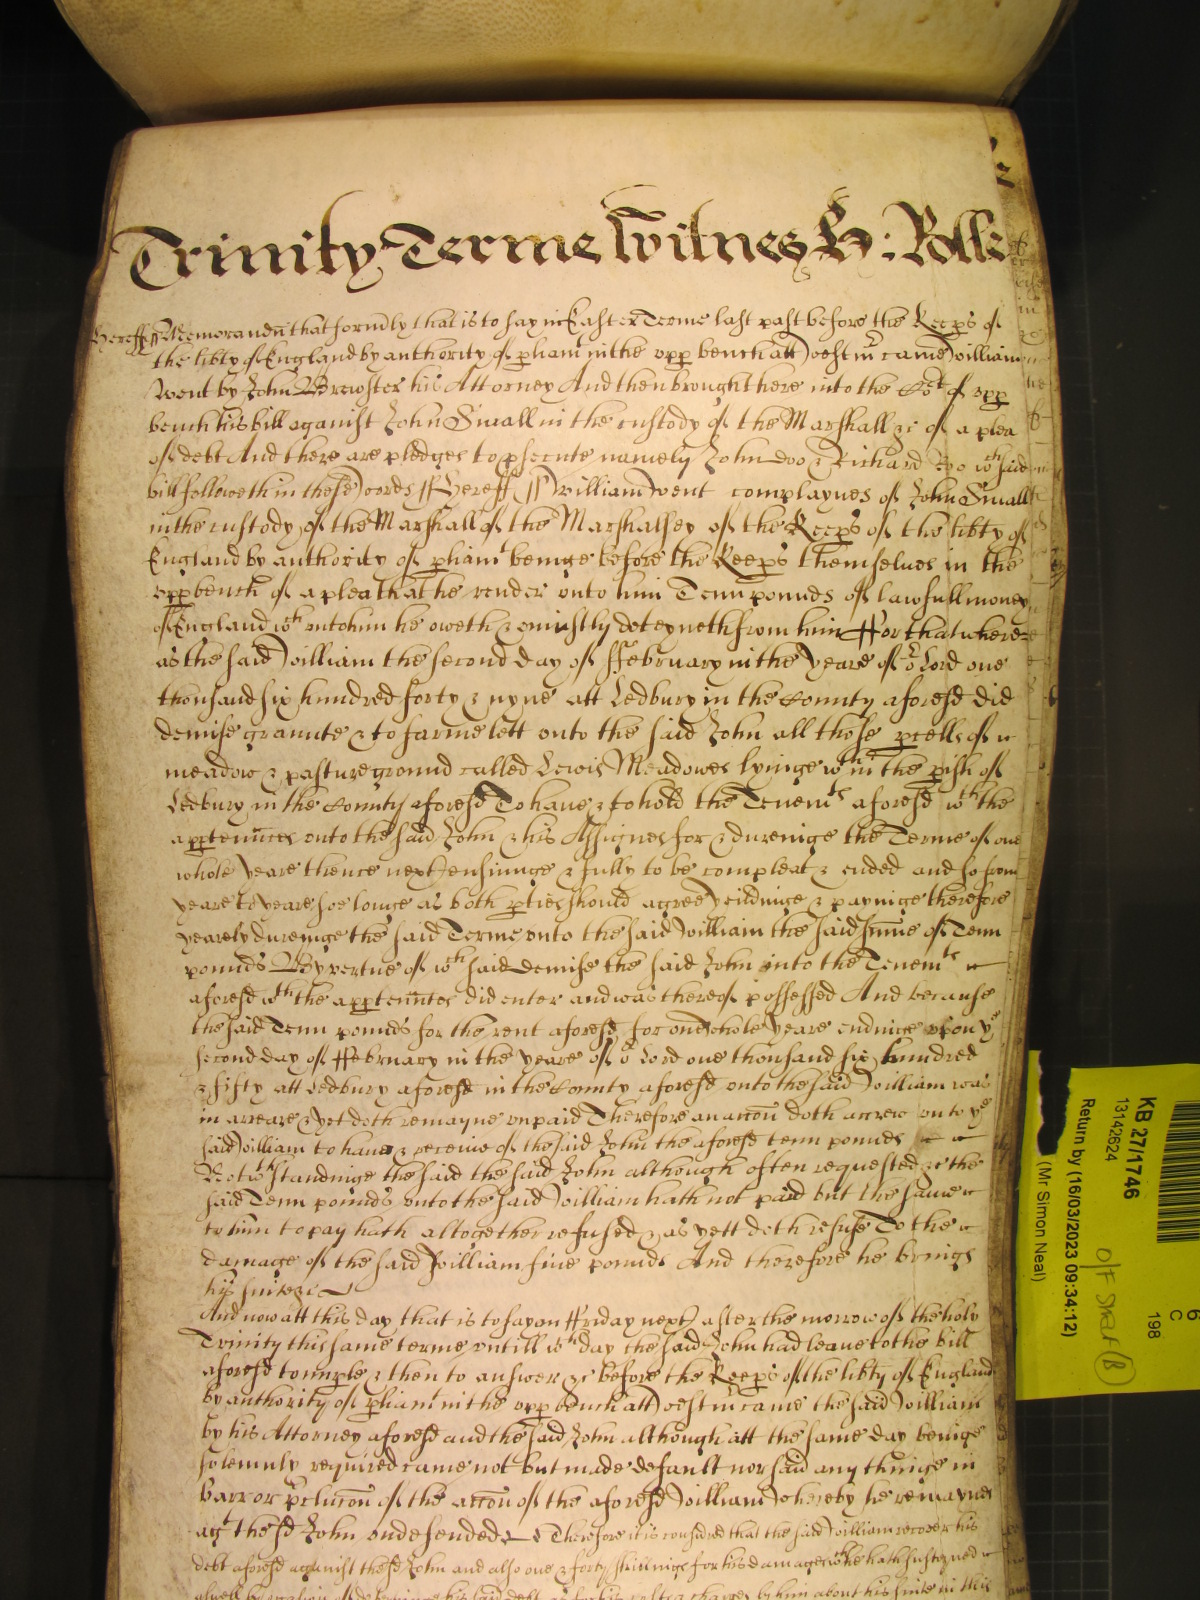 Trinity Terme Witnes H: Rolle
Hereff ss Memorandu that formly that is to say in Easter Terme last past before the Keeps of
the libty of England by authority of pliamt in the vpp bench att Westmr came William
Went by John Brewster his Attorney And then brought here into the Cort of vpp
bench his bill against John Small in the custody of the Marshall &c of a plea
of debt And there are pledges to psecute namely John Doo & Richard Roo wch said
bill followeth in these words ss Hereff ss William Went complaynes of John Small
in the custody of the Marshall of the Marshalsey of the Keeps of the libty of
England by authority of pliamt beinge before the Keeps themselues in the
vpp bench of a plea that he render vnto him Tenn pounds of lawfull money
of England wch vnto him he oweth & iniustly deteyneth from him ffor that where=
as the said William the second day of ffebruary in the yeare of or Lord one
thousand six hundred forty & nyne att Ledbury in the County aforesd did
demise graunte & to farme lett vnto the said John all those pcells of
meadow & pasture ground called Lewis Meadowes lyinge wthin the pish of
Ledbury in the County aforesd To haue & to hold the Tenemts aforesd wth the
apptennces vnto the said John & his Assignes for & dureinge the Terme of one
whole yeare thence next ensuinge & fully to be compleat & ended and so from
yeare to yeare soe longe as both pties should agree yeildinge & payinge therefore
yearely dureinge the said Terme vnto the said William the said sume of Tenn
pounds By vertue of wch said demise the said John into the Tenemts
aforesd wth the apptennces did enter and was thereof possessed And because
the said Tenn pounds for the rent aforesd for one whole yeare endinge vpon ye
second day of ffebruary in the yeare of or Lord one thousand six hundred
& fifty att Ledbury aforesd in the County aforesd vnto the said William was
in arreare & yet doth remayne vnpaid Therefore an accon doth accrew vnto ye
said William to haue & receiue of the said John the aforesd tenn pounds
Notwthstandinge the said the said John although often requested &c the
said Tenn pounds vnto the said William hath not paid but the same
to him to pay hath altogether refused & as yett doth refuse To the
damage of the said William fiue pounds And therefore he brings
his suite &c
And now att this day that is to say on ffriday next after the morrow of the holy
Trinity this same terme vntill wch day the said John had leaue to the bill
aforesd to imple & then to answer &c before the Keeps of the libty of England
by authority of pliamt in the vpp bench att Westmr came the said William
by his Attorney aforesd and the said John although att the same day beinge
solemnly required came not but made default nor said any thinge in
barr or pclucon of the accon of the aforesd William whereby he remaynes
agt the sd John vndefended Therefore it is considred that the said William recover his
debt aforesd against the sd John and also one & forty shillings for his damages wch he hath susteyned
aswell by occasion of deteyninge his said debt as for his costs & charges by him about his suite in this
KB 27/1746
13142624
Return by (16/03/2023 09:34:12)
(Mr Simon Neal)
C
198